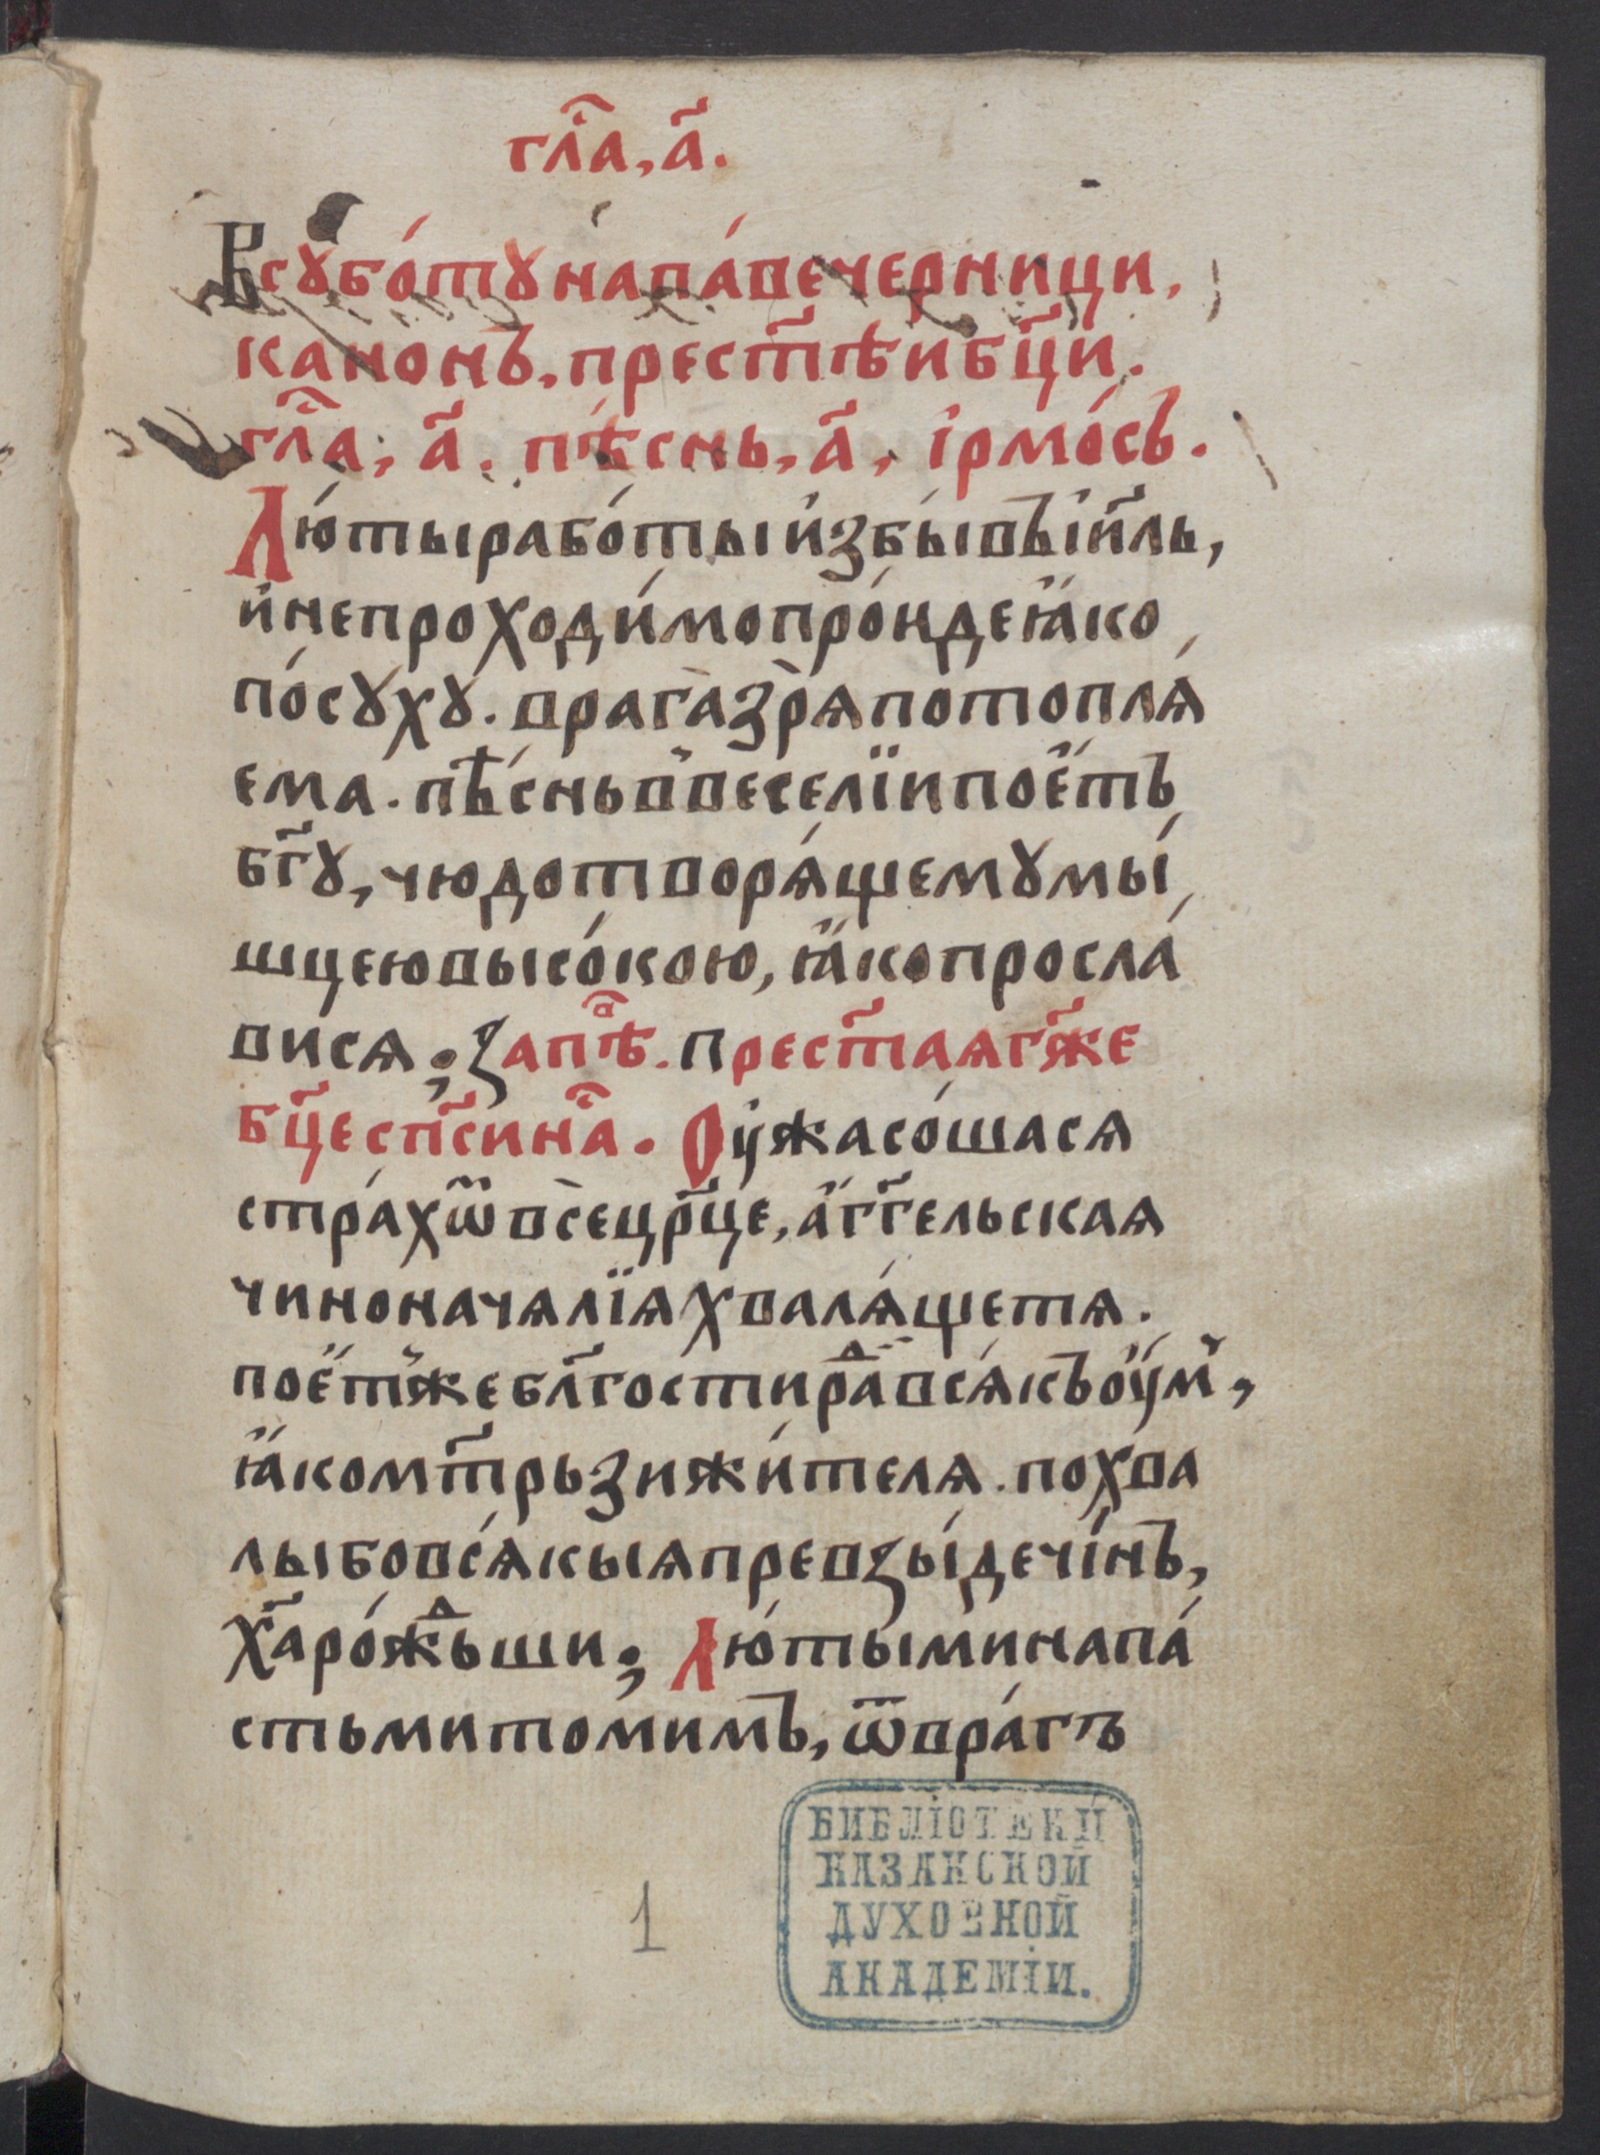 гла҃, а҃.
Всꙋбо́тꙋнапа́вечерници,
канонъ, престѣ҃ибц҃и.
гла҃, а҃. пѣ́снь, а҃, ірмо́съ.
Лю́тырабо́тыи҆збы́въіи҃ль,
и҆непроходи́мопро́идеꙗ҆́ко
по́сꙋхꙋ. врага̀зрѧ̀потоплѧ́
ема. пѣ́сньввеселїипое҆́тъ
бг҃ꙋ, чюдотворѧ́щемꙋмы́
шцеювысо́кою, ꙗ҆́копросла́
висѧ; Запѣ҃ва. Прест҃аѧгж҃е
бц҃еспс҃ина҃с. Оу҆жасо́шасѧ
стра́хѿвсѐцр҃це, а҆́гг҃ельскаѧ
чиноначѧлїѧхвалѧ́щетѧ.
пое҆́тжебл҃гостира́двсѧ́къоу҆́м,
ꙗ҆́комт҃рьзижи́телѧ. похва
лыбовсѧ́кыѧпревзы́дечи́нъ,
х҃аро́ждьши; Лю́тыминапа́
стьмитоми́мъ, ѿвра́гъ
1
БИБЛІОТЕКИ
КАЗАНСКОЙ
ДУХОВНОЙ
АКАДЕМІИ.